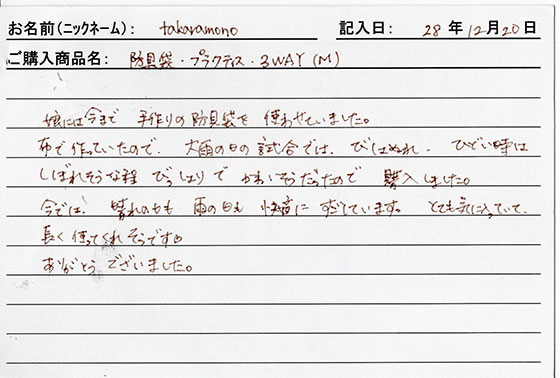 お名前(ニックネーム): takaramono 記入日: 28年12月20日
ご購入商品名: 防具袋・プラクティス・3WAY(M)
娘には今まで 手作りの防具袋を 使わせていました。
布で作っていたので、大雨の日の試合では、びしょぬれ、ひどい時は
しぼれそうな程 びっしょりで かわいそうだったので 購入しました。
今では、晴れの日も 雨の日も 快適に すごしています。 とても気に入っていて、
長く使ってくれそうです♡
ありがとう ございました。